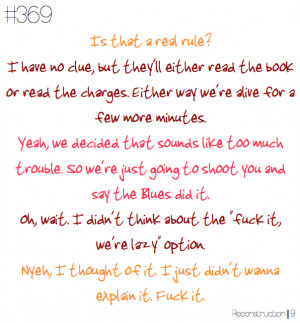 #369
Is that a real rule?
I have no clue, but they'll either read the book
or read the charges. Either way we're alive for a
few more minutes.
Yeah, we decided that sounds like too much
trouble. So we're just going to shoot you and
say the Blues did it.
Oh, wait. I didn't think about the "fuck it,
we're lazy" option.
Nyeh, I thought of it. I just didn't wanna
explain it. Fuck it.
Reconstruction | 9